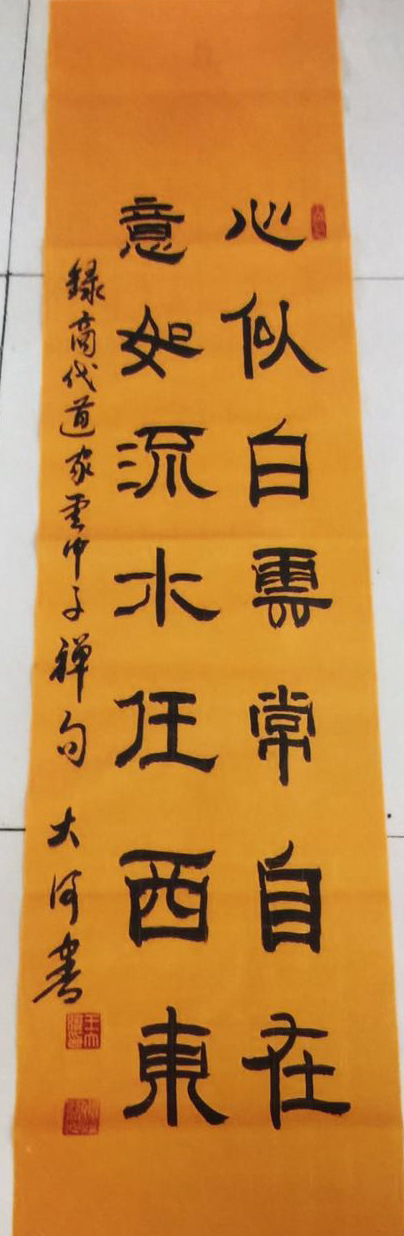 心似白雲常自在
意如流水任西東
録商代道家雲中子禅句 大河書